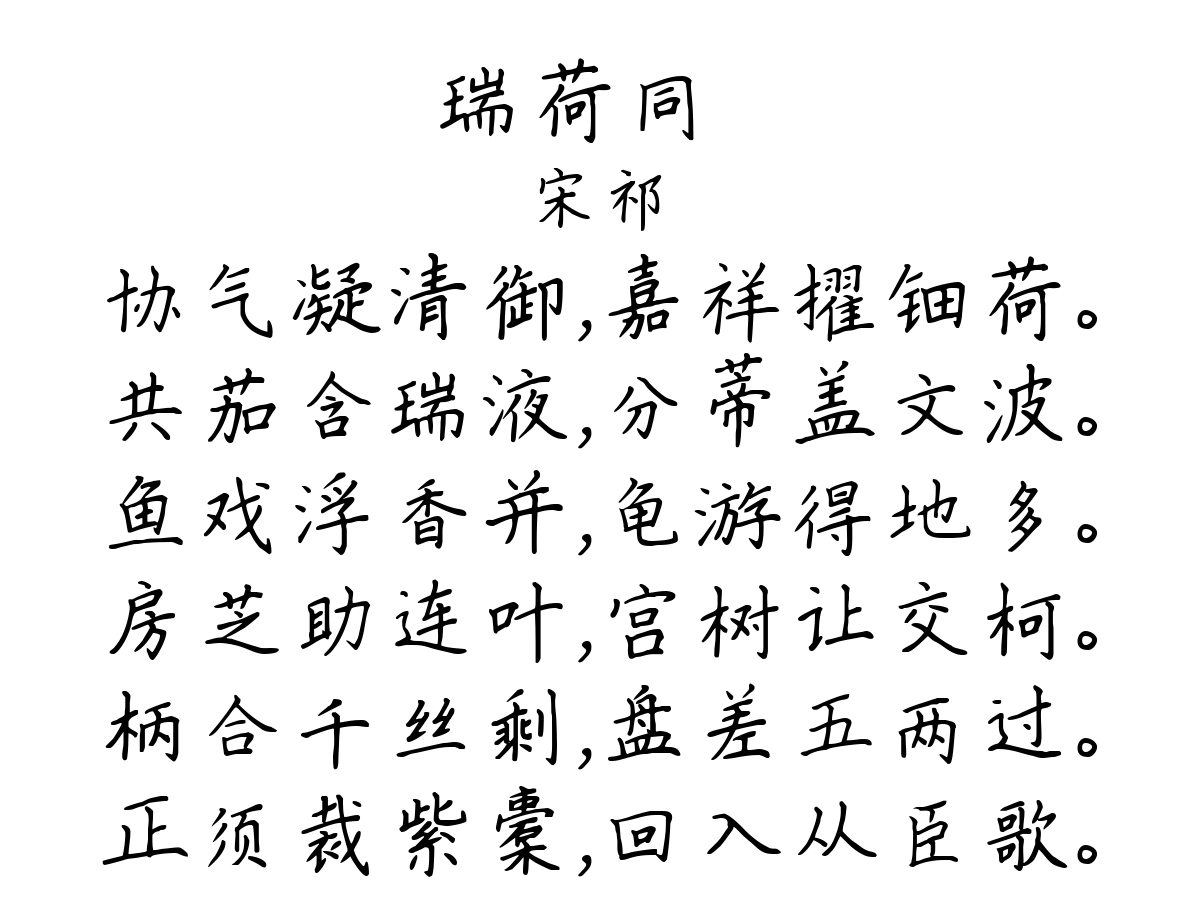 瑞荷同
宋祁
协气凝清御,嘉祥擢钿荷。
共茄含瑞液,分蒂盖文波。
鱼戏浮香并,龟游得地多。
房芝助连叶,宫树让交柯。
柄合千丝剩,盘差五两过。
正须裁紫橐,回入从臣歌。